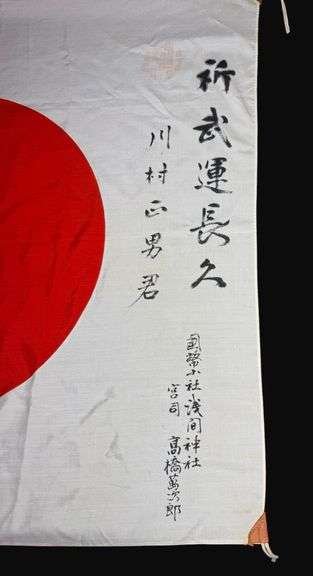 祈武運長久
川村正男君
國幣小社淺间神社
宮司 高橋萬次郎